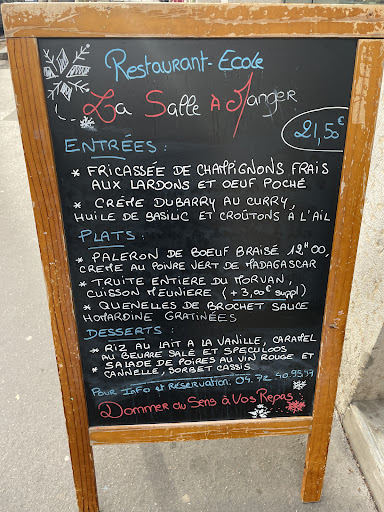 Restaurant-Ecole
La Salle à Manger
21,50€
ENTRÉES :
* FRICASSÉE DE CHAMPIGNONS FRAIS
AUX LARDONS ET OEUF POCHÉ
* CRÈME DUBARRY AU CURRY,
HUILE DE BASILIC ET CROÛTONS À L'AIL
PLATS :
* PALERON DE BOEUF BRAISÉ 12H00,
CREME AU POIVRE VERT DE MADAGASCAR
* TRUITE ENTIERE DU MORVAN,
CUISSON MEUNIERE (+ 3,00€ suppl)
* QUENELLES DE BROCHET SAUCE
HOMARDINE GRATINÉES
DESSERTS :
* RIZ AU LAIT A LA VANILLE, CARAMEL
AU BEURRE SALÉ ET SPECULOOS
* SALADE DE POIRES AU VIN ROUGE ET
CANNELLE, SORBET CASSIS
POUR INFO et RÉSERVATION: 04.72.40.99.97
Donner du Sens à Vos Repas